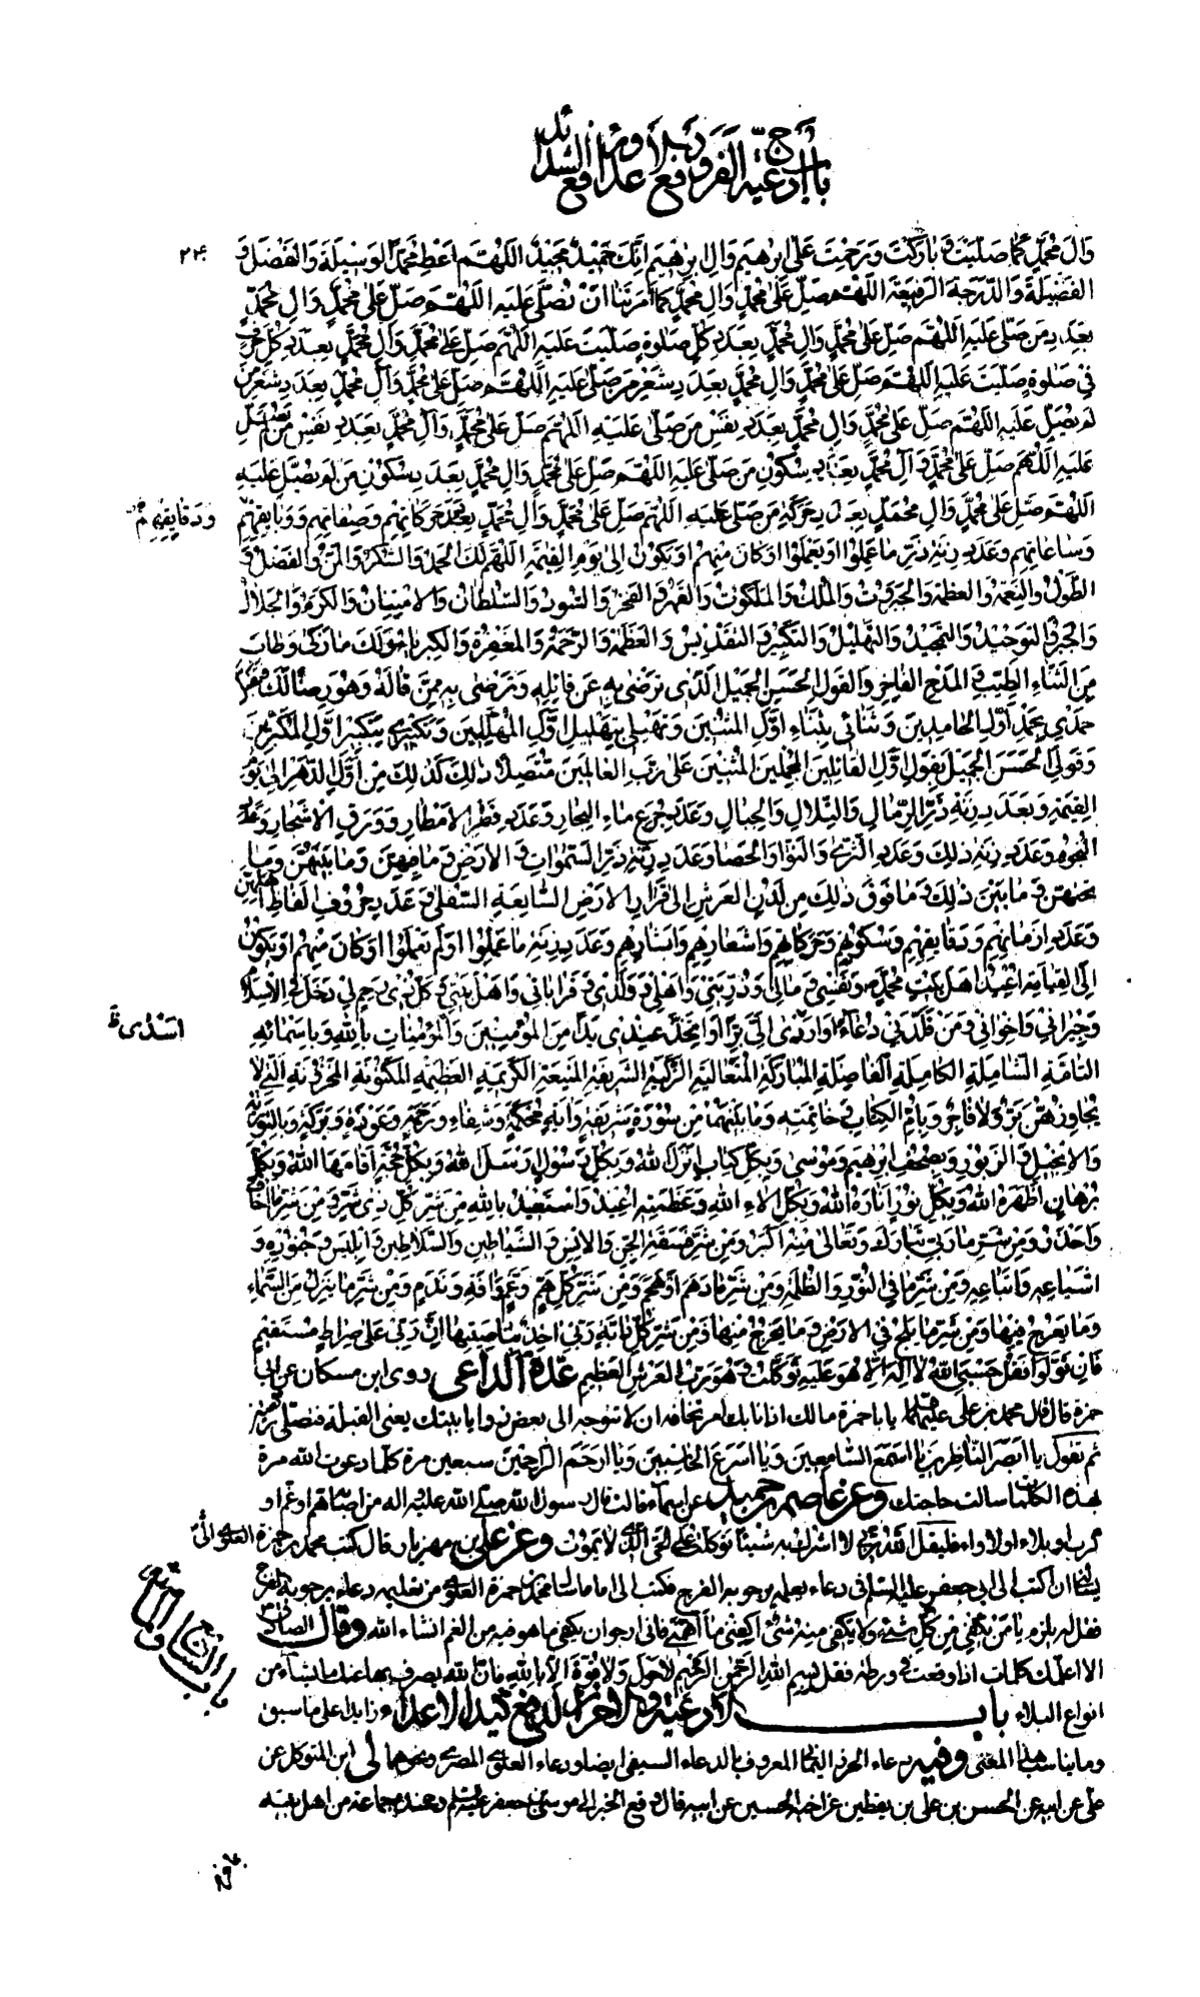 باب أدعية الفرج ودفع الأعداء ورفع الشدائد
٢٢٤
وَآلِ مُحَمَّدٍ كَمَا صَلَّيْتَ وَبَارَكْتَ وَتَرَحَّمْتَ عَلَى إِبْرٰهِيمَ وَآلِ إِبْرٰهِيمَ إِنَّكَ حَمِيدٌ مَجِيدٌ اَللّٰهُمَّ أَعْطِ مُحَمَّدًا الْوَسِيلَةَ وَالْفَضْلَ وَ
الْفَضِيلَةَ وَالدَّرَجَةَ الرَّفِيعَةَ اَللّٰهُمَّ صَلِّ عَلَى مُحَمَّدٍ وَآلِ مُحَمَّدٍ كَمَا أَمَرْتَنَا أَنْ نُصَلِّيَ عَلَيْهِ اَللّٰهُمَّ صَلِّ عَلَى مُحَمَّدٍ وَآلِ مُحَمَّدٍ
بِعَدَدِ مَنْ صَلَّى عَلَيْهِ اَللّٰهُمَّ صَلِّ عَلَى مُحَمَّدٍ وَآلِ مُحَمَّدٍ بِعَدَدِ كُلِّ صَلٰوةٍ صَلَّيْتَ عَلَيْهِ اَللّٰهُمَّ صَلِّ عَلَى مُحَمَّدٍ وَآلِ مُحَمَّدٍ بِعَدَدِ كُلِّ حَرْفٍ
فِي صَلٰوةٍ صَلَّيْتَ عَلَيْهِ اَللّٰهُمَّ صَلِّ عَلَى مُحَمَّدٍ وَآلِ مُحَمَّدٍ بِعَدَدِ شَعْرِ مَنْ صَلَّى عَلَيْهِ اَللّٰهُمَّ صَلِّ عَلَى مُحَمَّدٍ وَآلِ مُحَمَّدٍ بِعَدَدِ شَعْرِ مَنْ
لَمْ يُصَلِّ عَلَيْهِ اَللّٰهُمَّ صَلِّ عَلَى مُحَمَّدٍ وَآلِ مُحَمَّدٍ بِعَدَدِ نَفَسِ مَنْ صَلَّى عَلَيْهِ اَللّٰهُمَّ صَلِّ عَلَى مُحَمَّدٍ وَآلِ مُحَمَّدٍ بِعَدَدِ نَفَسِ مَنْ لَمْ يُصَلِّ
عَلَيْهِ اَللّٰهُمَّ صَلِّ عَلَى مُحَمَّدٍ وَآلِ مُحَمَّدٍ بِعَدَدِ سُكُونِ مَنْ صَلَّى عَلَيْهِ اَللّٰهُمَّ صَلِّ عَلَى مُحَمَّدٍ وَآلِ مُحَمَّدٍ بِعَدَدِ سُكُونِ مَنْ لَمْ يُصَلِّ عَلَيْهِ
اَللّٰهُمَّ صَلِّ عَلَى مُحَمَّدٍ وَآلِ مُحَمَّدٍ بِعَدَدِ حَرَكَةِ مَنْ صَلَّى عَلَيْهِ اَللّٰهُمَّ صَلِّ عَلَى مُحَمَّدٍ وَآلِ مُحَمَّدٍ بِعَدَدِ حَرَكَاتِهِمْ وَصِفَاتِهِمْ وَدَقَايِقِهِمْ
وَدَقَايِقِهِمْ
وَسَاعَاتِهِمْ وَعَدَدِ زِنَةِ ذَرِّ مَا عَمِلُوا أَوْ يَعْمَلُوا أَوْ كَانَ مِنْهُمْ أَوْ يَكُونُ إِلَى يَوْمِ الْقِيٰمَةِ اَللّٰهُمَّ لَكَ الْحَمْدُ وَالشُّكْرُ وَالْمَنُّ وَالْفَضْلُ وَ
الطَّوْلُ وَالنِّعْمَةُ وَالْعَظَمَةُ وَالْجَبَرُوتُ وَالْمُلْكُ وَالْمَلَكُوتُ وَالْقَهْرُ وَالْفَخْرُ وَالسُّودَدُ وَالسُّلْطَانُ وَالِامْتِنَانُ وَالْكَرَمُ وَالْجَلَالُ
وَالْخَيْرُ وَالتَّوْحِيدُ وَالتَّمْجِيدُ وَالتَّهْلِيلُ وَالتَّكْبِيرُ وَالتَّقْدِيسُ وَالْعَظَمَةُ وَالرَّحْمَةُ وَالْمَغْفِرَةُ وَالْكِبْرِيَاءُ وَلَكَ مَا زَكَى وَطَابَ
مِنَ الثَّنَاءِ الطَّيِّبِ وَالْمَدْحِ الْفَاخِرِ وَالْقَوْلِ الْحَسَنِ الْجَمِيلِ الَّذِي تَرْضَى بِهِ عَنْ قَائِلِهِ وَتَرْضَى بِهِ مِمَّنْ قَالَهُ وَهُوَ رِضًا لَكَ
حَمْدِي بِحَمْدِ أَوَّلِ الْحَامِدِينَ وَثَنَائِي بِثَنَاءِ أَوَّلِ الْمُثْنِينَ وَتَهْلِيلِي بِتَهْلِيلِ أَوَّلِ الْمُهَلِّلِينَ وَتَكْبِيرِي بِتَكْبِيرِ أَوَّلِ الْمُكَبِّرِينَ
وَقَوْلِيَ الْحَسَنُ الْجَمِيلُ بِقَوْلِ أَوَّلِ الْقَائِلِينَ الْمُجْمِلِينَ الْمُثْنِينَ عَلَى رَبِّ الْعَالَمِينَ مُتَّصِلًا ذٰلِكَ كَذٰلِكَ مِنْ أَوَّلِ الدَّهْرِ إِلَى يَوْمِ
الْقِيٰمَةِ وَبِعَدَدِ زِنَةِ ذَرِّ الرِّمَالِ وَالتِّلَالِ وَالْجِبَالِ وَعَدَدِ جُرَعِ مَاءِ الْبِحَارِ وَعَدَدِ قَطْرِ الْأَمْطَارِ وَوَرَقِ الْأَشْجَارِ وَعَدَدِ
النُّجُومِ وَعَدَدِ زِنَةِ ذٰلِكَ وَعَدَدِ الثَّرَى وَالنَّوَى وَالْحَصَى وَعَدَدِ زِنَةِ ذَرِّ السَّمٰوَاتِ وَالْأَرْضِ وَمَا فِيهِنَّ وَمَا بَيْنَهُنَّ وَمَا
تَحْتَهُنَّ وَمَا بَيْنَ ذٰلِكَ وَمَا فَوْقَ ذٰلِكَ مِنْ لَدُنِ الْعَرْشِ إِلَى قَرَارِ الْأَرْضِ السَّابِعَةِ السُّفْلَى وَعَدَدِ حُرُوفِ أَلْفَاظِ أَهْلِهِنَّ
وَعَدَدِ أَزْمَانِهِمْ وَدَقَايِقِهِمْ وَسُكُونِهِمْ وَحَرَكَاتِهِمْ وَأَشْعَارِهِمْ وَأَبْشَارِهِمْ وَعَدَدِ زِنَةِ مَا عَمِلُوا أَوْ لَمْ يَعْمَلُوا أَوْ كَانَ مِنْهُمْ أَوْ يَكُونُ
إِلَى الْقِيَامَةِ أُعِيذُ أَهْلَ بَيْتِ مُحَمَّدٍ وَنَفْسِي وَمَالِي وَذُرِّيَّتِي وَأَهْلِي وَوَلَدِي وَقَرَابَاتِي وَأَهْلَ بَيْتِي وَكُلَّ ذِي رَحِمٍ لِي دَخَلَ فِي الْإِسْلَامِ
وَجِيرَانِي وَإِخْوَانِي وَمَنْ قَلَّدَنِي دُعَاءً أَوْ أَسْدَى إِلَيَّ بِرًّا أَوِ اتَّخَذَ عِنْدِي يَدًا مِنَ الْمُؤْمِنِينَ وَالْمُؤْمِنَاتِ بِاللّٰهِ وَبِأَسْمَائِهِ
أَسْدَى ظ
التَّامَّةِ الشَّامِلَةِ الْكَامِلَةِ الْفَاضِلَةِ الْمُبَارَكَةِ الْمُتَعَالِيَةِ الزَّكِيَّةِ الشَّرِيفَةِ الْمَنِيعَةِ الْكَرِيمَةِ الْعَظِيمَةِ الْمَكْنُونَةِ الْمَخْزُونَةِ الَّتِي لَا
يُجَاوِزُهُنَّ بَرٌّ وَلَا فَاجِرٌ وَبِأُمِّ الْكِتَابِ وَخَاتِمَتِهِ وَمَا بَيْنَهُمَا مِنْ سُورَةٍ شَرِيفَةٍ وَآيَةٍ مُحْكَمَةٍ وَشِفَاءٍ وَرَحْمَةٍ وَعَوْذَةٍ وَبَرَكَةٍ وَبِالتَّوْرٰيةِ
وَالْإِنْجِيلِ وَالزَّبُورِ وَبِصُحُفِ إِبْرٰهِيمَ وَمُوسَى وَبِكُلِّ كِتَابٍ أَنْزَلَ اللّٰهُ وَبِكُلِّ رَسُولٍ أَرْسَلَ اللّٰهُ وَبِكُلِّ حُجَّةٍ أَقَامَهَا اللّٰهُ وَبِكُلِّ
بُرْهَانٍ أَظْهَرَهُ اللّٰهُ وَبِكُلِّ نُورٍ أَنَارَهُ اللّٰهُ وَبِكُلِّ آلَاءِ اللّٰهِ وَعَظَمَتِهِ أُعِيذُ وَأَسْتَعِيذُ بِاللّٰهِ مِنْ شَرِّ كُلِّ ذِي شَرٍّ وَمِنْ شَرِّ مَا أَخَافُ
وَأَحْذَرُ وَمِنْ شَرِّ مَا رَبِّي تَبَارَكَ وَتَعَالَى مِنْهُ أَكْبَرُ وَمِنْ شَرِّ فَسَقَةِ الْجِنِّ وَالْإِنْسِ وَالشَّيَاطِينِ وَالسَّلَاطِينِ وَإِبْلِيسَ وَجُنُودِهِ وَ
أَشْيَاعِهِ وَأَتْبَاعِهِ وَمِنْ شَرِّ مَا فِي النُّورِ وَالظُّلْمَةِ وَمِنْ شَرِّ مَا دَهِمَ أَوْ هَجَمَ وَمِنْ شَرِّ كُلِّ هَمٍّ وَغَمٍّ وَآفَةٍ وَنَدَمٍ وَمِنْ شَرِّ مَا يَنْزِلُ مِنَ السَّمَاءِ
وَمَا يَعْرُجُ فِيهَا وَمِنْ شَرِّ مَا يَلِجُ فِي الْأَرْضِ وَمَا يَخْرُجُ مِنْهَا وَمِنْ شَرِّ كُلِّ دَابَّةٍ رَبِّي آخِذٌ بِنَاصِيَتِهَا إِنَّ رَبِّي عَلَى صِرَاطٍ مُسْتَقِيمٍ
فَإِنْ تَوَلَّوْا فَقُلْ حَسْبِيَ اللّٰهُ لَا إِلٰهَ إِلَّا هُوَ عَلَيْهِ تَوَكَّلْتُ وَهُوَ رَبُّ الْعَرْشِ الْعَظِيمِ عدّة الداعي روى ابن مسكان عن أبي
حمزة قال قال محمد بن علي عليهما السلام يا با حمزة مالك اذا نابك امر تخافه ان لا تتوجه الى بعض زوايا بيتك يعني القبلة فتصلي ركعتين
ثم تقول يَا أَبْصَرَ النَّاظِرِينَ يَا أَسْمَعَ السَّامِعِينَ وَيَا أَسْرَعَ الْحَاسِبِينَ وَيَا أَرْحَمَ الرَّاحِمِينَ سبعين مرة كلما دعوت الله مرة
بهذه الكلمات سالت حاجتك وعن عاصم بن حميد عن اسماء قالت قال رسول الله صلى الله عليه واله من اصابه هم او غم او
كرب او بلاء او لاواء فليقل اَللّٰهُ رَبِّي لَا أُشْرِكُ بِهِ شَيْئًا تَوَكَّلْتُ عَلَى الْحَيِّ الَّذِي لَا يَمُوتُ وعن علي بن مهزيار قال كتب محمد بن حمزة العلوي الى
يسئلني ان اكتب الى ابي جعفر عليه السلام في دعاء يعلمه يرجو به الفرج فكتب الى اما ما سال محمد بن حمزة العلوي من تعليمه دعاء يرجو به الفرج
فقل له يلزم يَا مَنْ يَكْفِي مِنْ كُلِّ شَيْءٍ وَلَا يَكْفِي مِنْهُ شَيْءٌ اكْفِنِي مَا أَهَمَّنِي فاني ارجو ان يكفى ما هو فيه من الغم انشاء الله وقال الصادق
الا اعلمك كلمات اذا وقعت في ورطة فقل بِسْمِ اللّٰهِ الرَّحْمٰنِ الرَّحِيمِ لَا حَوْلَ وَلَا قُوَّةَ إِلَّا بِاللّٰهِ فان الله يصرف بها عنك ما يشاء من
انواع البلاء باب الأدعية والأحراز لدفع كيد الأعداء زايدا على ما سبق
باب التاسع والمائة
وما يناسب هذا المعنى وفيه دعاء الحرز اليماني المعروف بالدعاء السيفي ايضا ودعاء العلوي المصري ونحوهما لي ابن المتوكل عن
علي عن ابيه عن الحسن بن علي بن يقطين عن اخيه الحسين عن ابيه قال وقع الخبر الى موسى بن جعفر عليه السلام وعنده جماعة من اهل بيته